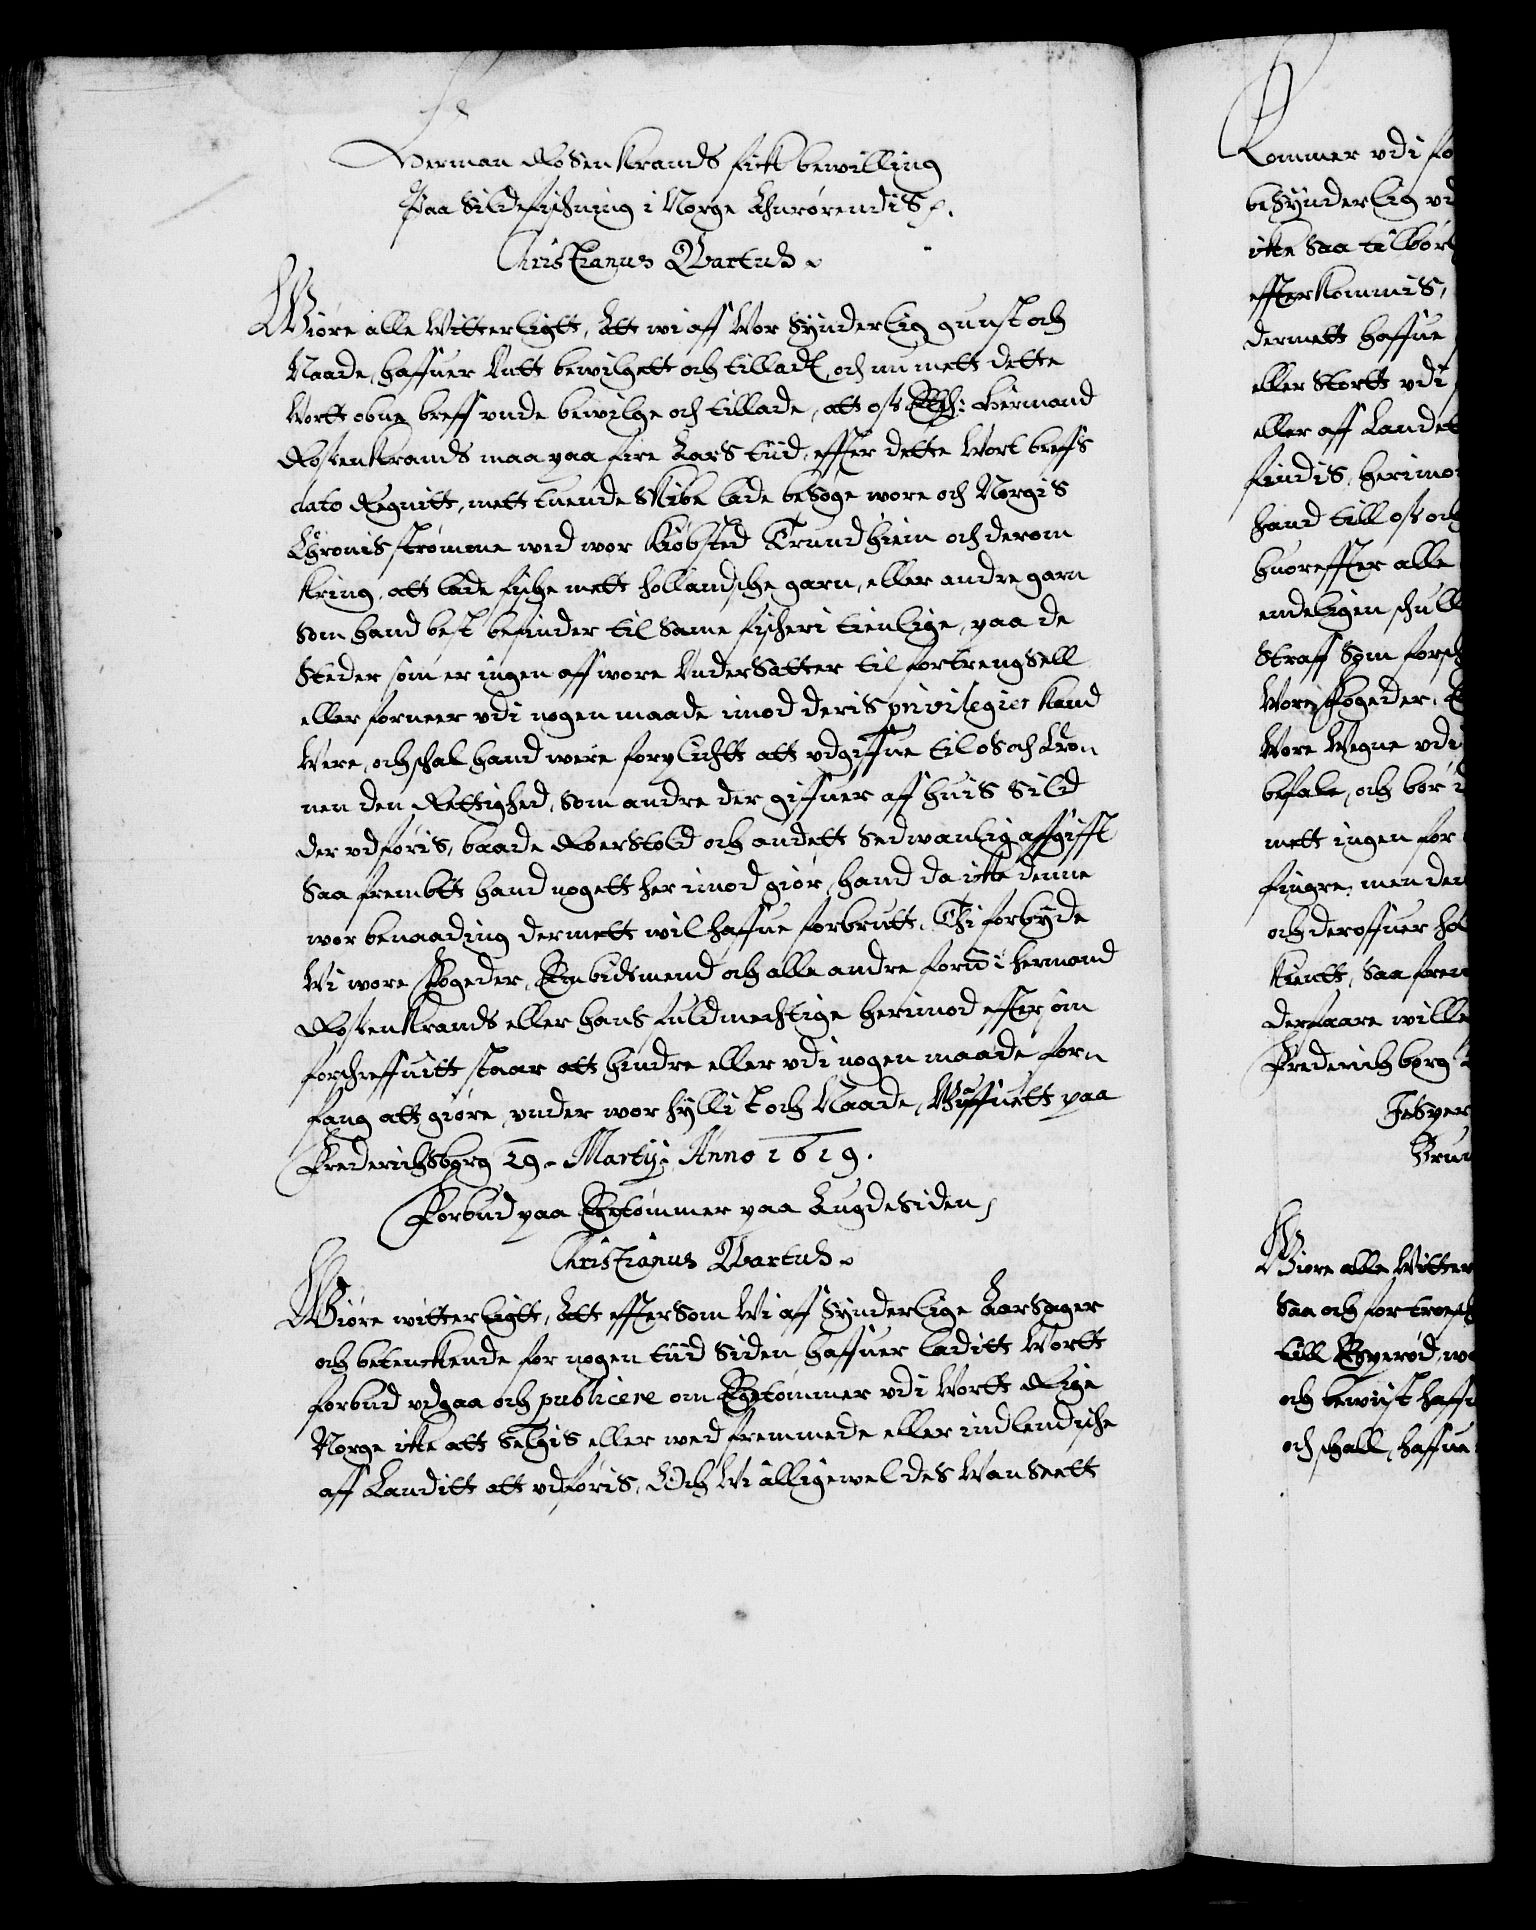 Herman Rosenkrands fick bewilling
Paa Sildefischning i Norge Anrørendis.
Christianus Qvartus.
Giøre alle Witterligt, Att wi aff Vor Synderlig gunst och
Naade, haffuer Untt bewilgett och tilladt, och nu mett dette
Wortt obne breff vnde bewilge och tillade, att oss Elsk: Hermand
Rosenkrands maa paa fire Aars tiid, effter dette Wort breffs
dato Regnitt, mett tuende Skibe lade besøge wore och Norgis
Chronis strømme wed wor Kiøbsted Trundhiem och derom
kring, att lade fische mett hollandsche garn, eller andre garn
som hand best befinder til same fischeri tienlige, paa de
Steder som er ingen aff wore Undersatter til fortrengsell
eller forneer vdi nogen maade imod deris privilegier kand
Were, och schal hand were forplichtt att vdgiffue til os och Kron
nen den Rettighed, som andre der giffuer aff huis Sild
der vdføris, baade Roerstold och andett Sedwanlig affgifft
Saa frembtt hand nogett her imod giør, hand da icke denne
wor benaading dermett wil haffue forbrutt. Thi forbyde
Wi wore Fogeder, Embidsmend och alle andre forne Hermand
Rosenkrands eller hans fuldmechtige herimod effter som
forschreffuitt staar att hindre eller vdi nogen maade forn
fang att giøre, vnder wor hyllist och Naade, Giffuett paa
Frederichsborg 29. Martij. Anno 1619.
Forbud paa Egetømmer paa Augdesiden
Christianus Qvartus.
Giøre witterligt, Att effter som Wi aff Synderlige Aarsager
och betenckende for nogen tiid siden haffuer laditt Wortt
forbud vdgaa och publicere om Egetømmer vdi Wortt Rige
Norge icke att selgis eller wed fremmede eller indlendische
aff Landitt att vdføris, Och Wi alligewel des Wanseett
Kommer vdi fo
besynderlig vd
icke saa tilbør
effterkommis,
dermett haffue
eller Stortt vdi
eller aff Landet
findis, herimo
hand till oss och
huoreffter alle
endeligen schull
Straff som forsch
Wore Fogeder,
Wore Wegne vdi
befale, och bør
mett ingen for
fingre, men der
och deroffuer ha
kientt, saa frem
derfaare wille
Frederichborg
Jesper
Brun
Giøre alle Witter
saa och for troesch
till
och bewist haffu
och schall, haffue